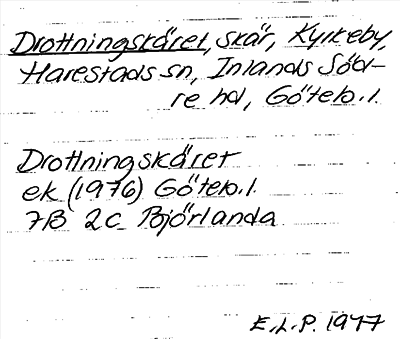 Drottningskäret, skär, Kyrkeby,
Harestads sn, Inlands Söd-
re hd, Göteb. l.
Drottningskäret
ek (1976) Göteb. l.
7B 2c Björlanda
E.L.P. 1977